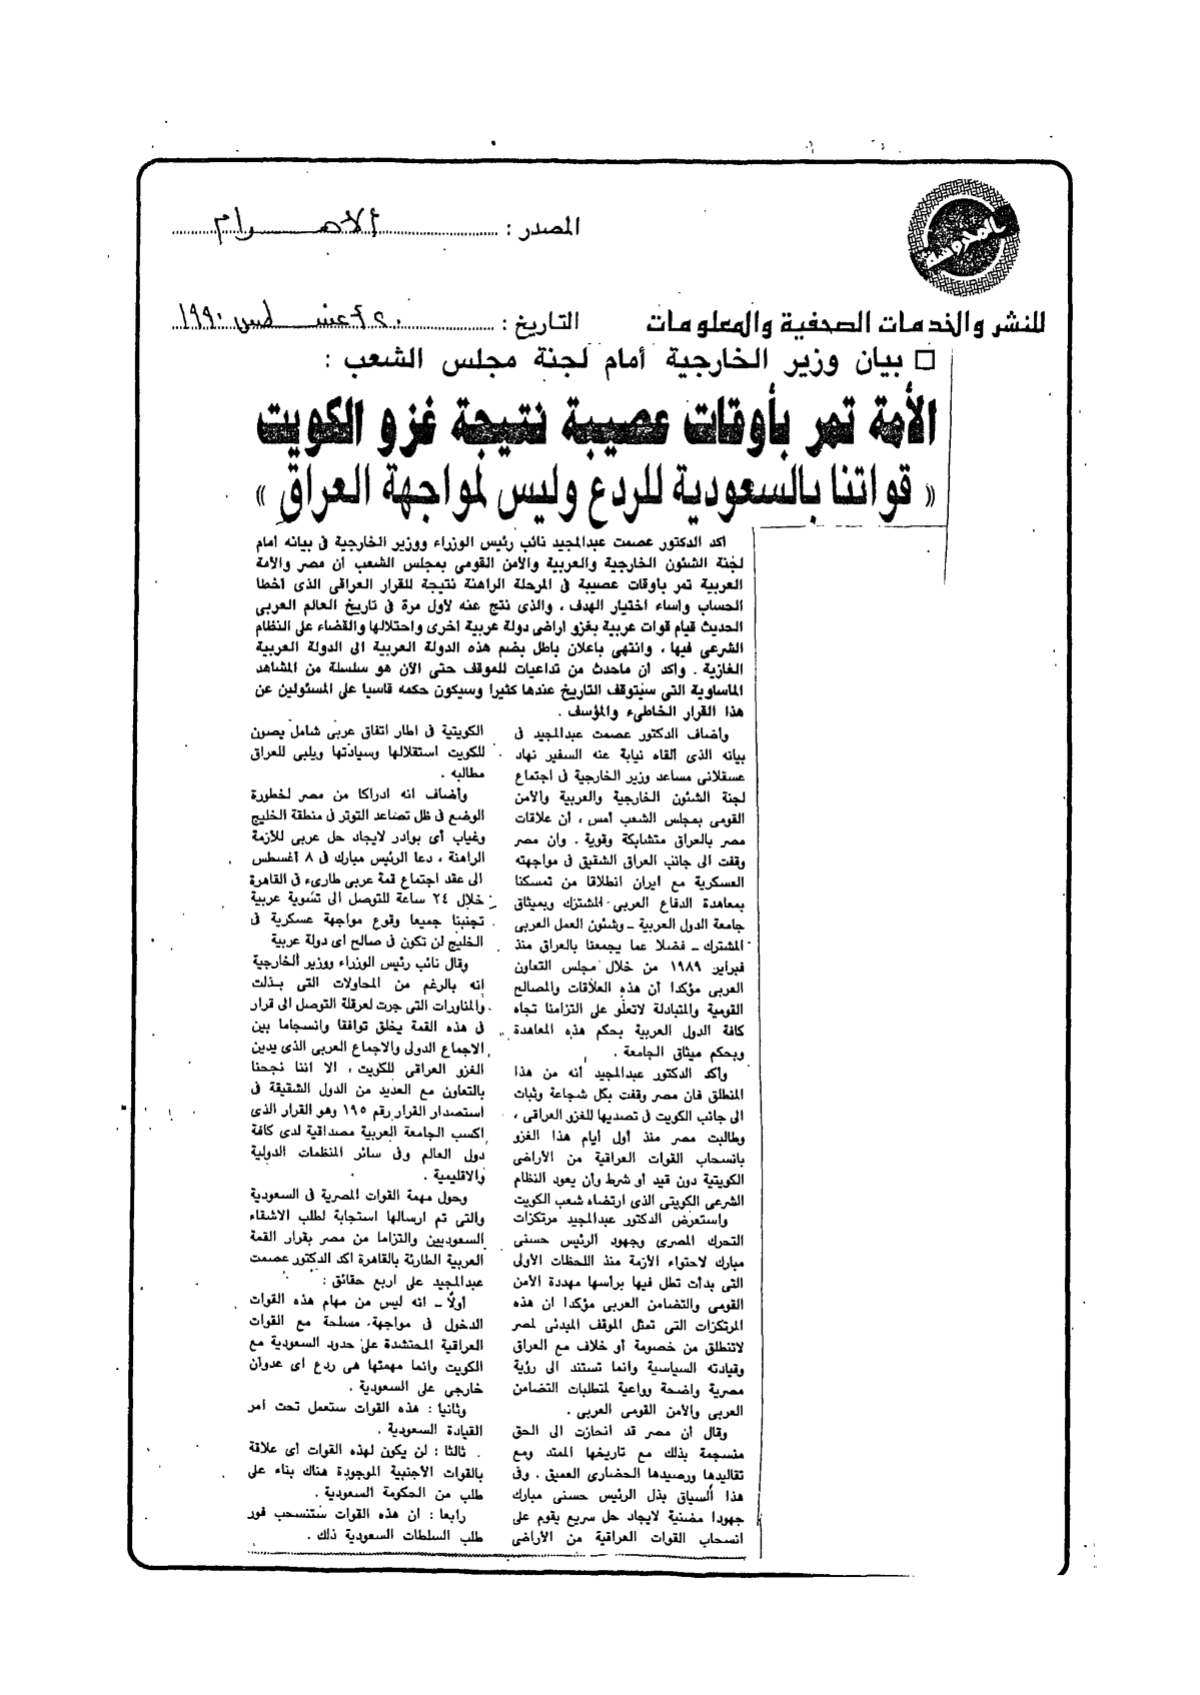 المصدر : الأهرام
للنشر والخدمات الصحفية والمعلومات
التاريخ : ٢٠ أغسطس ١٩٩٠
□ بيان وزير الخارجية أمام لجنة مجلس الشعب :
الأمة تمر بأوقات عصيبة نتيجة غزو الكويت
« قواتنا بالسعودية للردع وليس لمواجهة العراق »
أكد الدكتور عصمت عبدالمجيد نائب رئيس الوزراء ووزير الخارجية فى بيانه أمام
لجنة الشئون الخارجية والعربية والأمن القومى بمجلس الشعب أن مصر والأمة
العربية تمر بأوقات عصيبة فى المرحلة الراهنة نتيجة للقرار العراقى الذى أخطا
الحساب وأساء اختيار الهدف ، والذى نتج عنه لأول مرة فى تاريخ العالم العربى
الحديث قيام قوات عربية بغزو اراضى دولة عربية أخرى واحتلالها والقضاء على النظام
الشرعى فيها ، وانتهى باعلان باطل بضم هذه الدولة العربية الى الدولة العربية
الغازية . وأكد أن ماحدث من تداعيات للموقف حتى الآن هو سلسلة من المشاهد
الماساوية التى سيتوقف التاريخ عندها كثيرا وسيكون حكمه قاسيا على المسئولين عن
هذا القرار الخاطىء والمؤسف .
وأضاف الدكتور عصمت عبدالمجيد فى
بيانه الذى ألقاه نيابة عنه السفير نهاد
عسقلانى مساعد وزير الخارجية فى اجتماع
لجنة الشئون الخارجية والعربية والأمن
القومى بمجلس الشعب أمس ، أن علاقات
مصر بالعراق متشابكة وقوية . وان مصر
وقفت الى جانب العراق الشقيق فى مواجهته
العسكرية مع ايران انطلاقا من تمسكنا
بمعاهدة الدفاع العربى المشترك وبميثاق
جامعة الدول العربية ـ وشئون العمل العربى
المشترك ـ فضلا عما يجمعنا بالعراق منذ
فبراير ١٩٨٩ من خلال مجلس التعاون
العربى مؤكدا أن هذه العلاقات والمصالح
القومية والمتبادلة لاتعلو على التزامنا تجاه
كافة الدول العربية بحكم هذه المعاهدة
وبحكم ميثاق الجامعة .
وأكد الدكتور عبدالمجيد أنه من هذا
المنطلق فان مصر وقفت بكل شجاعة وثبات
الى جانب الكويت فى تصديها للغزو العراقى ،
وطالبت مصر منذ أول أيام هذا الغزو
بانسحاب القوات العراقية من الأراضى
الكويتية دون قيد أو شرط وأن يعود النظام
الشرعى الكويتى الذى ارتضاه شعب الكويت
واستعرض الدكتور عبدالمجيد مرتكزات
التحرك المصرى وجهود الرئيس حسنى
مبارك لاحتواء الأزمة منذ اللحظات الأولى
التى بدأت تطل فيها برأسها مهددة الأمن
القومى والتضامن العربى مؤكدا ان هذه
المرتكزات التى تمثل الموقف المبدئى لمصر
لاتنطلق من خصومة أو خلاف مع العراق
وقيادته السياسية وانما تستند الى رؤية
مصرية واضحة وواعية لمتطلبات التضامن
العربى والأمن القومى العربى .
وقال أن مصر قد انحازت الى الحق
منسجمة بذلك مع تاريخها الممتد ومع
تقاليدها ورصيدها الحضارى العميق . وفى
هذا السياق بذل الرئيس حسنى مبارك
جهودا مضنية لايجاد حل سريع يقوم على
انسحاب القوات العراقية من الأراضى
الكويتية فى اطار اتفاق عربى شامل يصون
للكويت استقلالها وسيادتها ويلبى للعراق
مطالبه .
وأضاف انه ادراكا من مصر لخطورة
الوضع فى ظل تصاعد التوتر فى منطقة الخليج
وغياب أى بوادر لايجاد حل عربى للأزمة
الراهنة ، دعا الرئيس مبارك فى ٨ أغسطس
الى عقد اجتماع قمة عربى طارىء فى القاهرة
خلال ٢٤ ساعة للتوصل الى تسوية عربية
تجنبنا جميعا وقوع مواجهة عسكرية فى
الخليج لن تكون فى صالح اى دولة عربية
وقال نائب رئيس الوزراء ووزير الخارجية
إنه بالرغم من المحاولات التى بذلت
والمناورات التى جرت لعرقلة التوصل الى قرار
فى هذه القمة يخلق توافقا وانسجاما بين
الاجماع الدولى والاجماع العربى الذى يدين
الغزو العراقى للكويت ، الا اننا نجحنا
بالتعاون مع العديد من الدول الشقيقة فى
استصدار القرار رقم ١٩٥ وهو القرار الذى
اكسب الجامعة العربية مصداقية لدى كافة
دول العالم وفى سائر المنظمات الدولية
والاقليمية .
وحول مهمة القوات المصرية فى السعودية
والتى تم ارسالها استجابة لطلب الاشقاء
السعوديين والتزاما من مصر بقرار القمة
العربية الطارئة بالقاهرة اكد الدكتور عصمت
عبدالمجيد على اربع حقائق :
أولا ـ انه ليس من مهام هذه القوات
الدخول فى مواجهة مسلحة مع القوات
العراقية المحتشدة على حدود السعودية مع
الكويت وانما مهمتها هى ردع اى عدوان
خارجى على السعودية .
وثانيا : هذه القوات ستعمل تحت أمر
القيادة السعودية .
ثالثا : لن يكون لهذه القوات أى علاقة
بالقوات الأجنبية الموجودة هناك بناء على
طلب من الحكومة السعودية .
رابعا : ان هذه القوات ستنسحب فور
طلب السلطات السعودية ذلك .